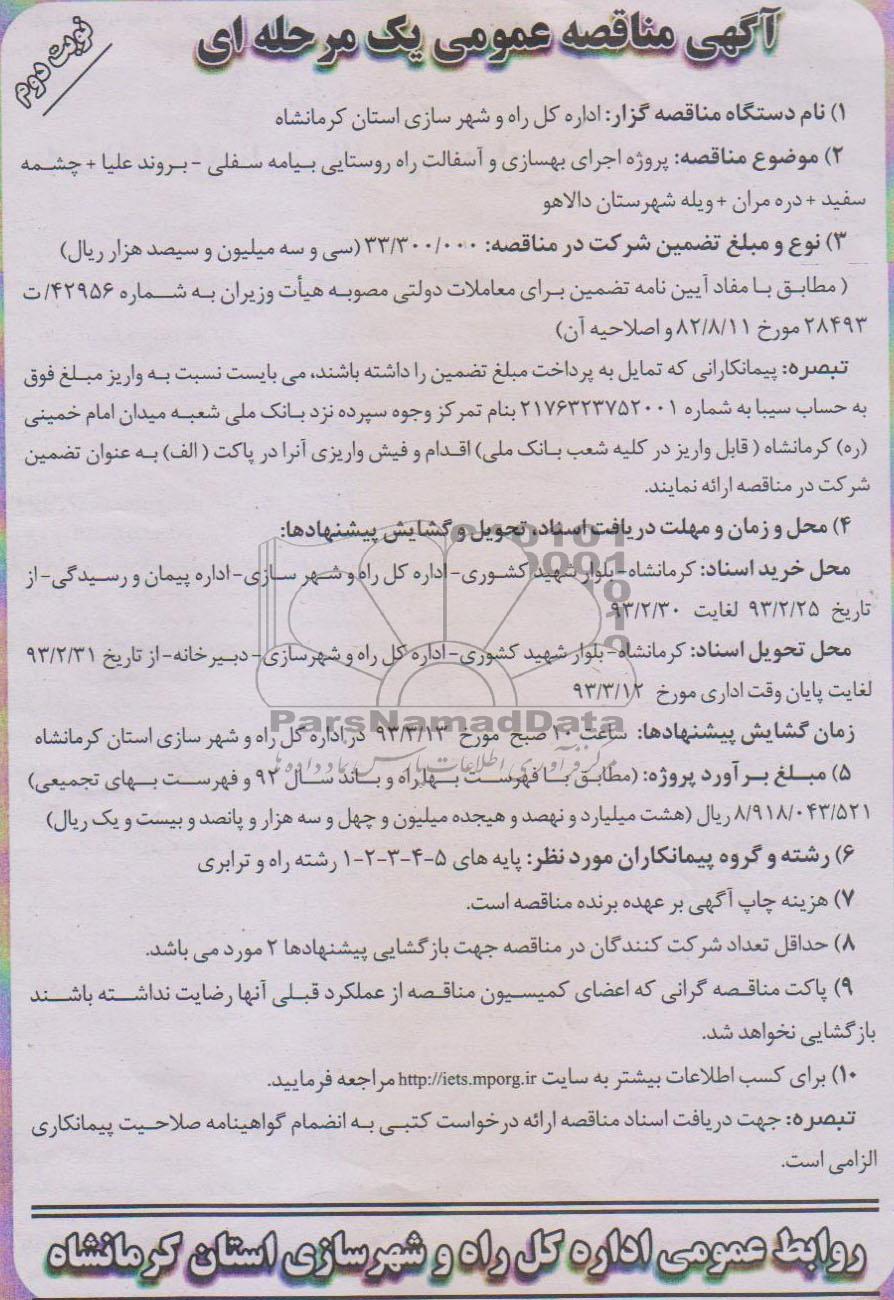 آگهی مناقصه عمومی یک مرحله ای
نوبت دوم
۱) نام دستگاه مناقصه گزار: اداره کل راه و شهر سازی استان کرمانشاه
۲) موضوع مناقصه: پروژه اجرای بهسازی و آسفالت راه روستایی بیامه سفلی - بروند علیا + چشمه
سفید + دره مران + ویله شهرستان دالاهو
۳) نوع و مبلغ تضمین شرکت در مناقصه: ۳۳/۳۰۰/۰۰۰ (سی و سه میلیون و سیصد هزار ریال)
( مطابق با مفاد آیین نامه تضمین برای معاملات دولتی مصوبه هیأت وزیران به شماره ۴۲۹۵۶/ ت
۲۸۴۹۳ مورخ ۸۲/۸/۱۱ و اصلاحیه آن)
تبصره: پیمانکارانی که تمایل به پرداخت مبلغ تضمین را داشته باشند، می بایست نسبت به واریز مبلغ فوق
به حساب سیبا به شماره ۲۱۷۶۳۲۳۷۵۲۰۰۱ بنام تمرکز وجوه سپرده نزد بانک ملی شعبه میدان امام خمینی
(ره) کرمانشاه ( قابل واریز در کلیه شعب بانک ملی) اقدام و فیش واریزی آنرا در پاکت ( الف) به عنوان تضمین
شرکت در مناقصه ارائه نمایند.
۴) محل و زمان و مهلت دریافت اسناد، تحویل و گشایش پیشنهادها:
محل خرید اسناد: کرمانشاه- بلوار شهید کشوری- اداره کل راه و شهر سازی- اداره پیمان و رسیدگی- از
تاریخ ۹۳/۲/۲۵ لغایت ۹۳/۲/۳۰
محل تحویل اسناد: کرمانشاه- بلوار شهید کشوری- اداره کل راه و شهرسازی- دبیرخانه- از تاریخ ۹۳/۲/۳۱
لغایت پایان وقت اداری مورخ ۹۳/۳/۱۲
ParsNamadData
زمان گشایش پیشنهادها: ساعت ۱۰ صبح مورخ ۹۳/۳/۱۳ در اداره کل راه و شهر سازی استان کرمانشاه
مرکز فرآوری اطلاعات پارس نماد داده ها
۵) مبلغ برآورد پروژه: (مطابق با فهرست بها راه و باند سال ۹۲ و فهرست بهای تجمیعی)
۸/۹۱۸/۰۴۳/۵۲۱ ریال (هشت میلیارد و نهصد و هیجده میلیون و چهل و سه هزار و پانصد و بیست و یک ریال)
۶) رشته و گروه پیمانکاران مورد نظر: پایه های ۵-۴-۳-۲-۱ رشته راه و ترابری
۷) هزینه چاپ آگهی بر عهده برنده مناقصه است.
۸) حداقل تعداد شرکت کنندگان در مناقصه جهت بازگشایی پیشنهادها ۲ مورد می باشد.
۹) پاکت مناقصه گرانی که اعضای کمیسیون مناقصه از عملکرد قبلی آنها رضایت نداشته باشند
بازگشایی نخواهد شد.
۱۰) برای کسب اطلاعات بیشتر به سایت http://iets.mporg.ir مراجعه فرمایید.
تبصره: جهت دریافت اسناد مناقصه ارائه درخواست کتبی به انضمام گواهینامه صلاحیت پیمانکاری
الزامی است.
روابط عمومی اداره کل راه و شهرسازی استان کرمانشاه